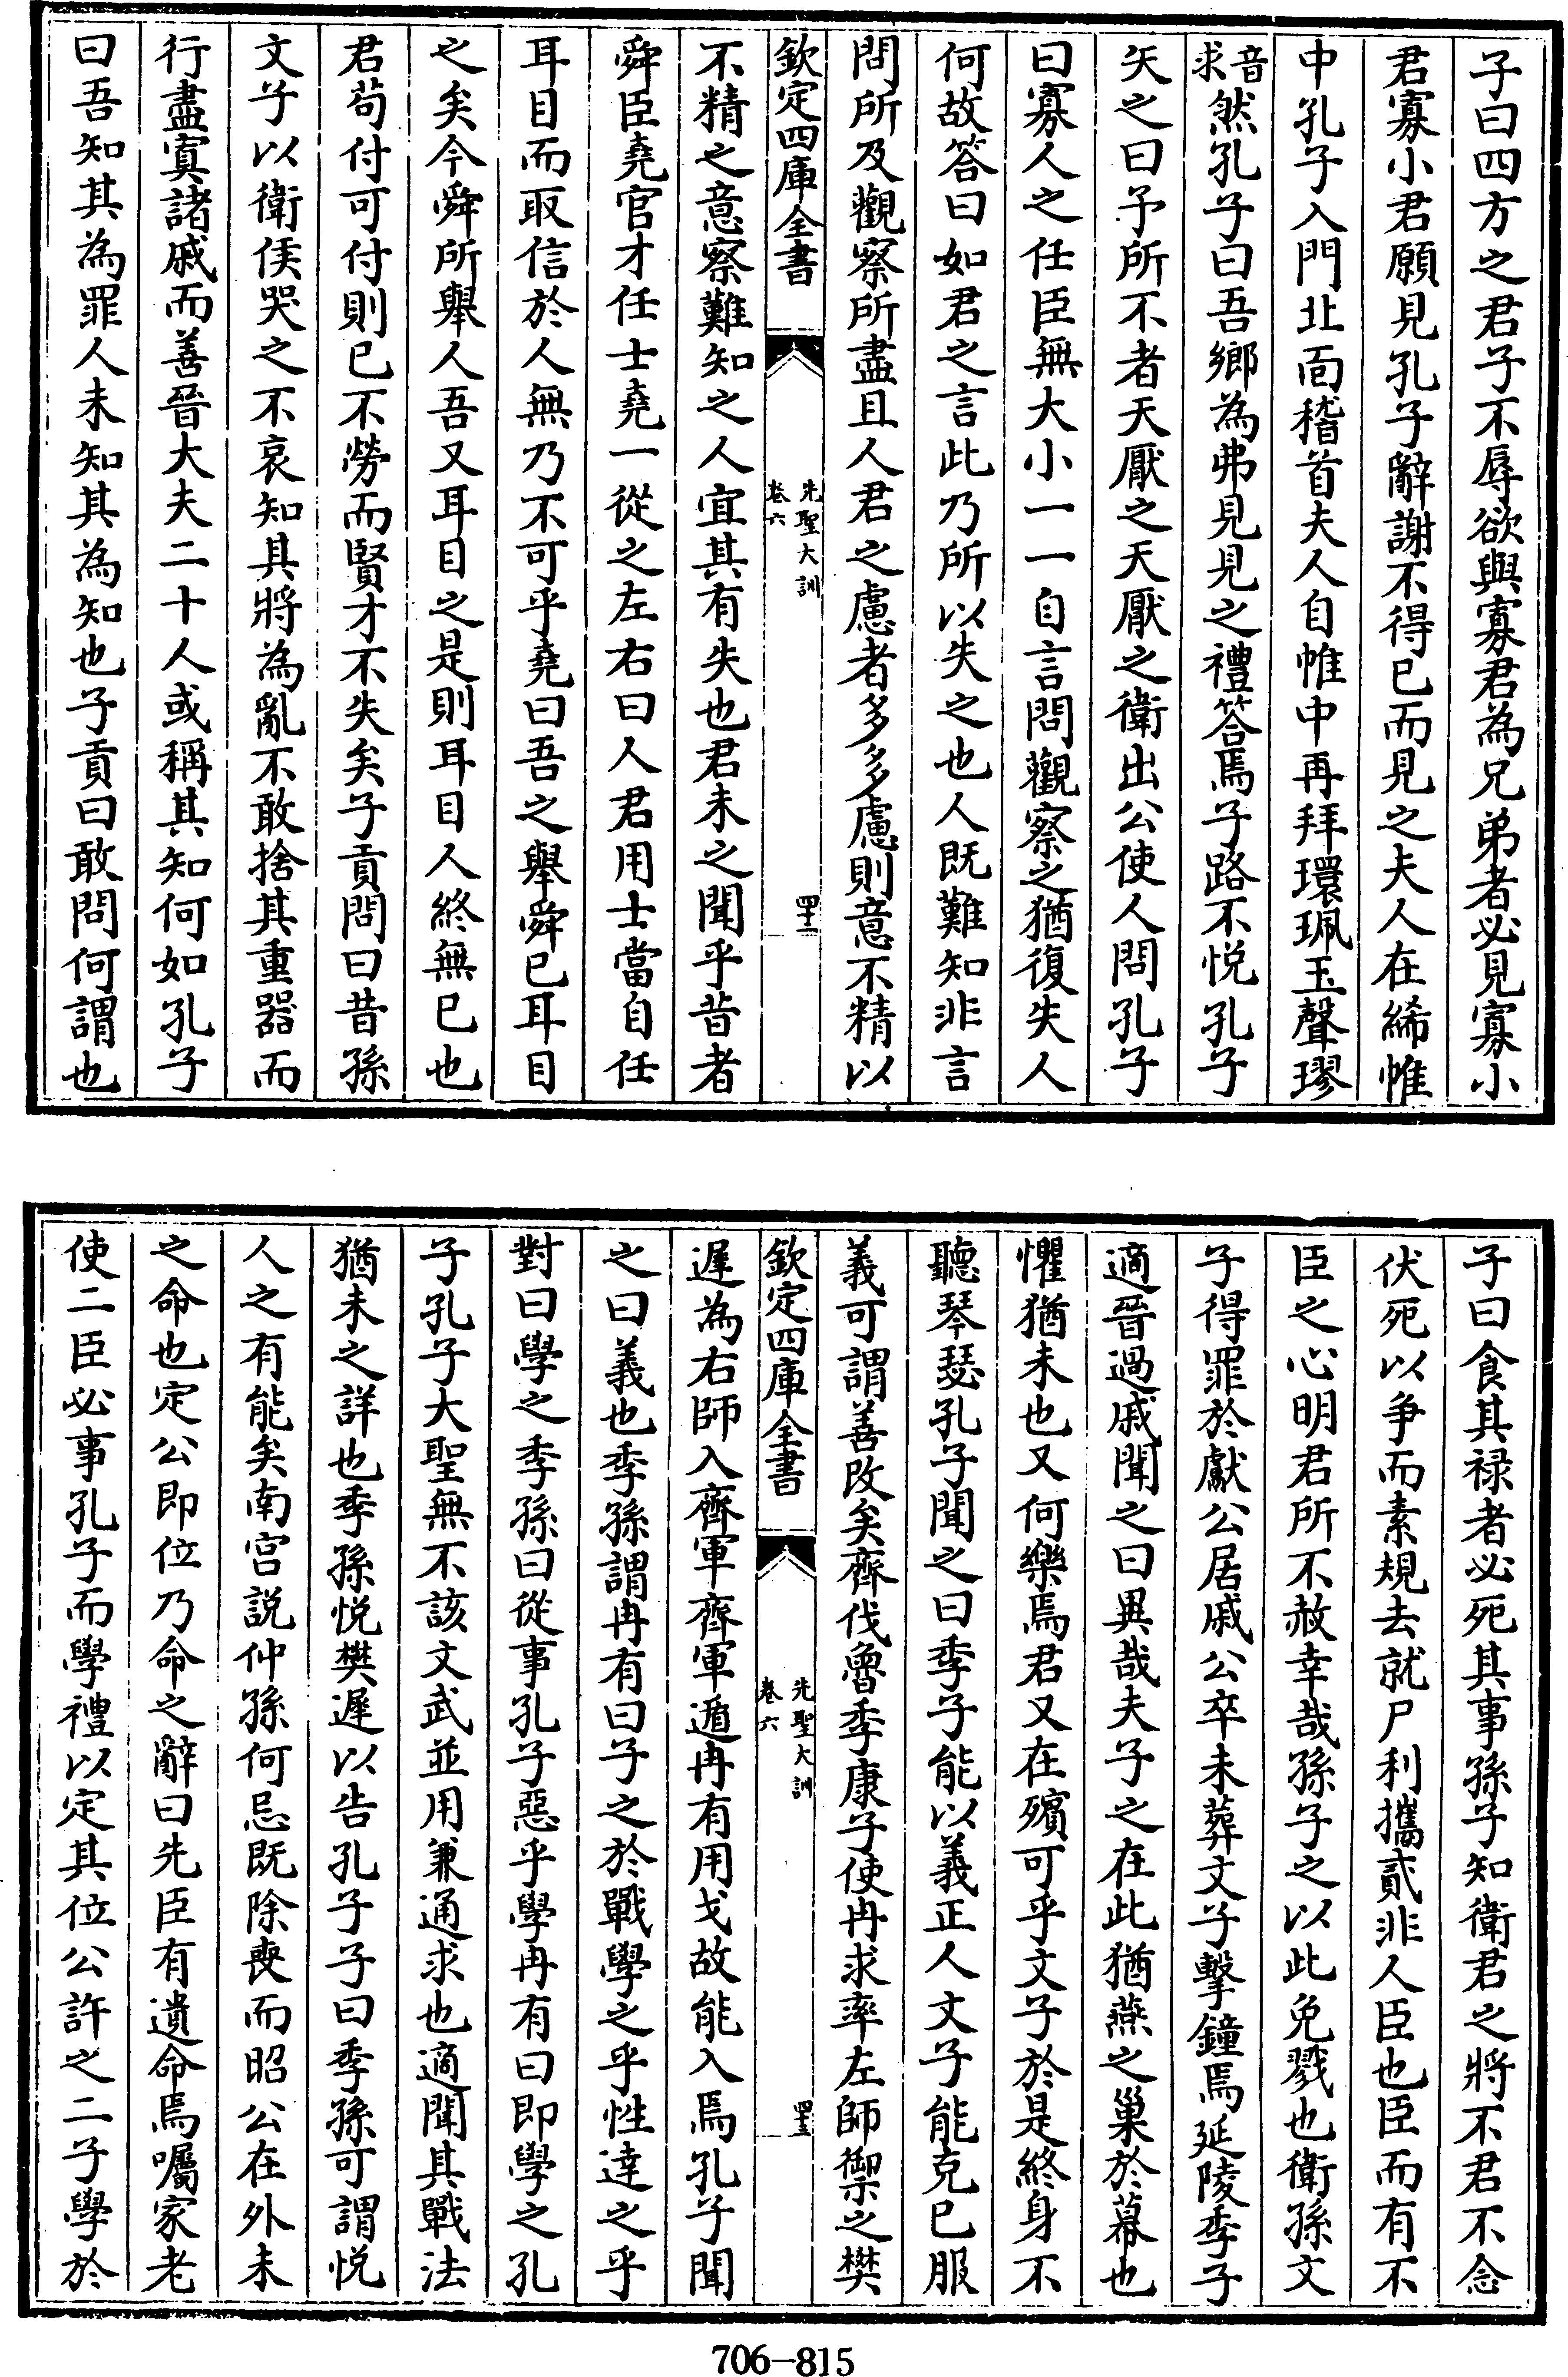 子曰四方之君子不辱欲與寡君為兄弟者必見寡小
君寡小君願見孔子辭謝不得已而見之夫人在絺帷
中孔子入門北面稽首夫人自帷中再拜環珮玉聲璆
音求然孔子曰吾鄉為弗見見之禮答焉子路不悅孔子
矢之曰予所不者天厭之天厭之衛出公使人問孔子
曰寡人之任臣無大小一一自言問觀察之猶復失人
何故答曰如君之言此乃所以失之也人既難知非言
問所及觀察所盡且人君之慮者多多慮則意不精以
欽定四庫全書
先聖大訓
卷六
四十二
不精之意察難知之人宜其有失也君未之聞乎昔者
舜臣堯官才任士堯一從之左右曰人君用士當自任
耳目而取信於人無乃不可乎堯曰吾之舉舜已耳目
之矣今舜所舉人吾又耳目之是則耳目人終無已也
君苟付可付則已不勞而賢才不失矣子貢問曰昔孫
文子以衛侯哭之不哀知其將為亂不敢捨其重器而
行盡寘諸戚而善晉大夫二十人或稱其知何如孔子
曰吾知其為罪人未知其為知也子貢曰敢問何謂也
子曰食其禄者必死其事孫子知衛君之將不君不念
伏死以爭而素規去就尸利攜貳非人臣也臣而有不
臣之心明君所不赦幸哉孫子之以此免戮也衛孫文
子得罪於獻公居戚公卒未葬文子擊鐘焉延陵季子
適晉過戚聞之曰異哉夫子之在此猶燕之巢於幕也
懼猶未也又何樂焉君又在殯可乎文子於是終身不
聽琴瑟孔子聞之曰季子能以義正人文子能克己服
義可謂善改矣齊伐魯季康子使冉求率左師禦之樊
欽定四庫全書
先聖大訓
卷六
四十三
遲為右師入齊軍齊軍遁冉有用戈故能入焉孔子聞
之曰義也季孫謂冉有曰子之於戰學之乎性達之乎
對曰學之季孫曰從事孔子惡乎學冉有曰即學之孔
子孔子大聖無不該文武並用兼通求也適聞其戰法
猶未之詳也季孫悅樊遲以告孔子子曰季孫可謂悅
人之有能矣南宮說仲孫何忌既除喪而昭公在外未
之命也定公即位乃命之辭曰先臣有遺命焉囑家老
使二臣必事孔子而學禮以定其位公許之二子學於
706-815